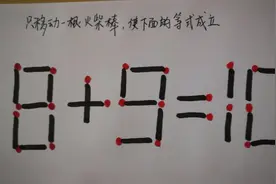 只移动一根火柴棒，使下面的等式成立
8+9=1